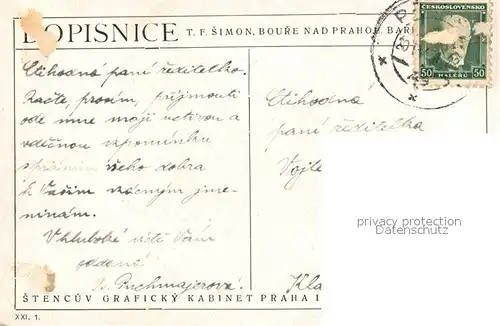 DOPISNICE T. F. ŠIMON, BOUŘE NAD PRAHOU, BAR
ČESKOSLOVENSKO
50 HALÉŘŮ 50
Ctihodná paní ředitelko.
Račte, prosím, přijmouti
ode mne moji uctivou a
vděčnou vzpomínku
s přáním všeho dobra
k Vašim vzácným jme-
ninám.
V hluboké úctě Vám
oddaná
Puchmajerová.
Ctihodná
paní ředitelka
Vojtě
Kla
privacy protection
Datenschutz
ŠTENCŮV GRAFICKÝ KABINET PRAHA I
XXI. 1.